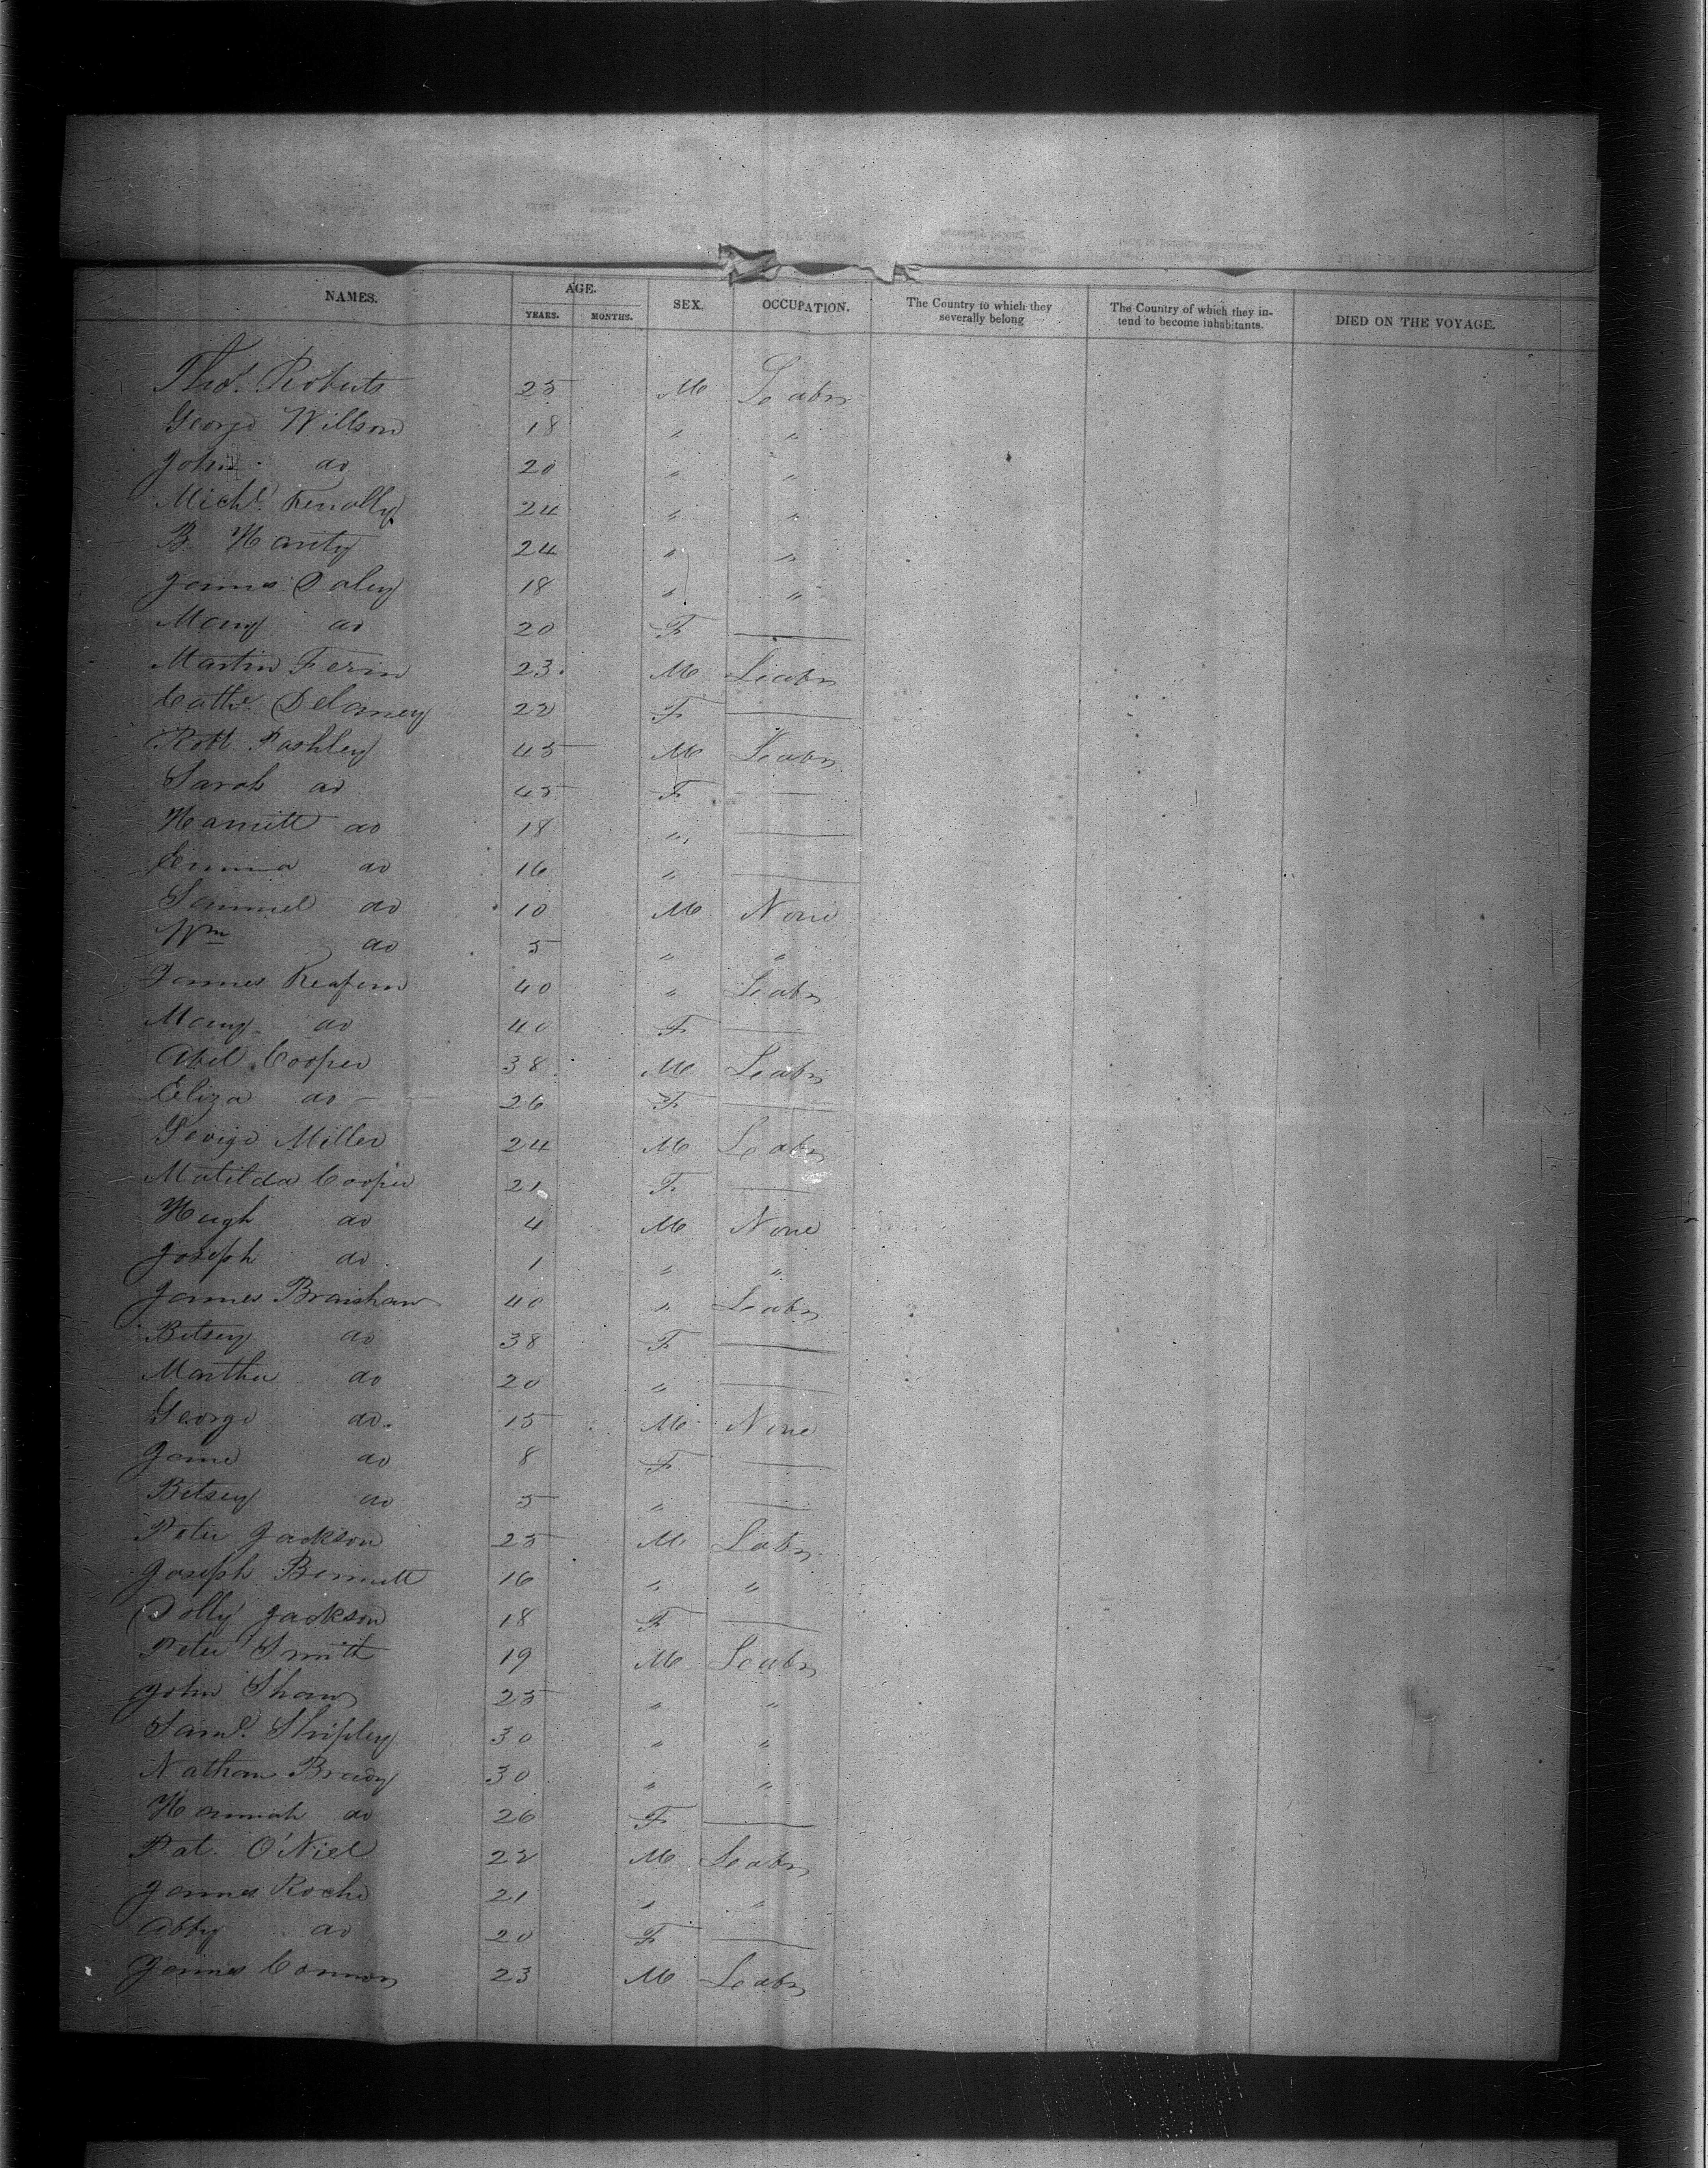 NAMES. AGE. SEX. OCCUPATION. The Country to which they severally belong The Country of which they intend to become inhabitants. DIED ON THE VOYAGE.
YEARS. MONTHS.
Thos. Roberts 25 M Labr
George Willson 18 " "
John do 20 " "
Michl. 24 " "
B. Harity 24 " "
James Daley 18 " "
Mary do 20 F
Martin Ferin 23 M Labr
Cathe. Delaney 22 F
Robt. Pashley 45 M Labr
Sarah do 45 F
Harriett do 18 "
Emma do 16 "
Samuel do 10 M None
Wm do 5 " "
James 40 " Labr
Mary do 40 F
Abel Cooper 38 M Labr
Eliza do 26 F
George Miller 24 M Labr
Matilda Cooper 21 F
Hugh do 4 M None
Joseph do 1 " "
James Braishaw 40 " Labr
Betsey do 38 F
Martha do 20 "
George do 15 M None
Jane do 8 F
Betsey do 5 "
Peter Jackson 25 M Labr
Joseph Bennett 16 " "
Dolly Jackson 18 F
Peter Smith 19 M Labr
John Shaw 25 " "
Saml. Shipley 30 " "
Nathan Brady 30 " "
Hannah do 26 F
Pat. O'Niel 22 M Labr
James Roche 21 " "
Abby do 20 F
James Connon 23 M Labr